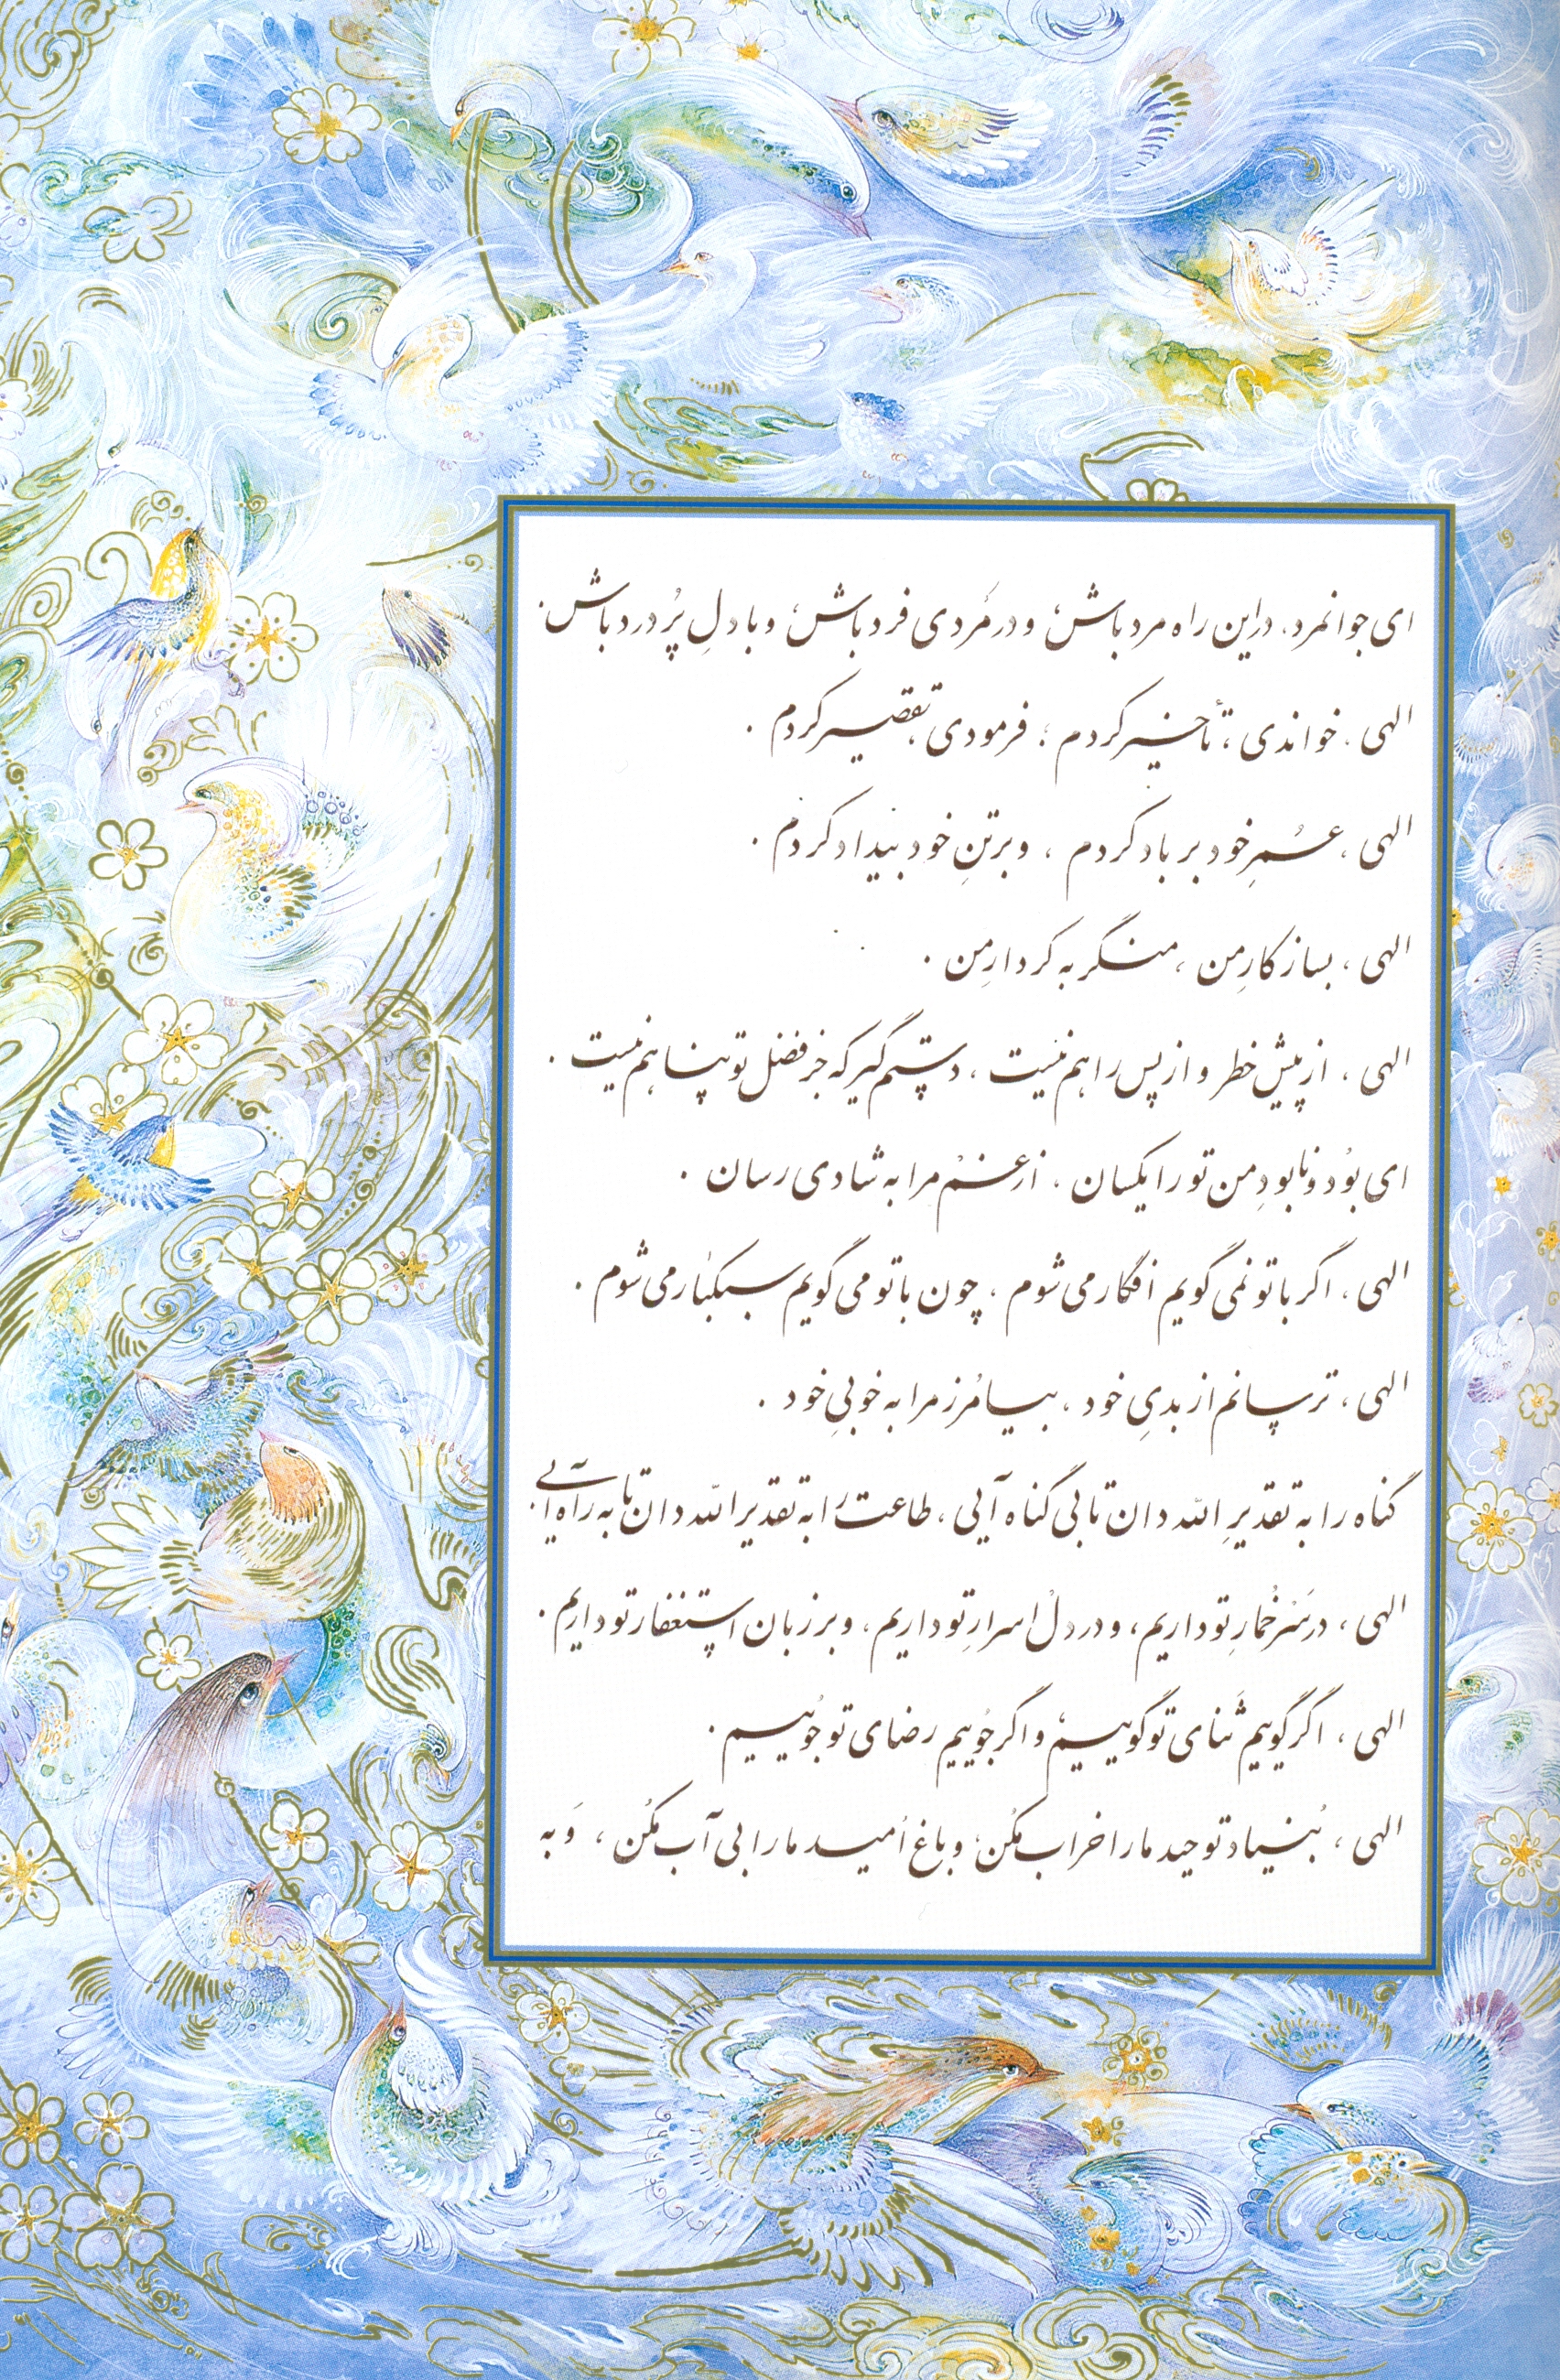 ای جوانمرد، در این راه مرد باش؛ و در مَردی فرد باش؛ و با دلِ پُر درد باش.
الهی، خواندی، تأخیر کردم؛ فرمودی، تقصیر کردم.
الهی، عُمرِ خود بر باد کردم، و بر تنِ خود بیداد کردم.
الهی، بساز کارِ من، منگر به کردارِ من.
الهی، از پیش خطر و از پس راهم نیست، دستم گیر که جز فضل تو پناهم نیست.
ای بوُد و نابودِ من تو را یکسان، از غمْ مرا به شادی رسان.
الهی، اگر با تو نمی گویم افگار می شوم، چون با تو می گویم سبکبار می شوم.
الهی، ترسانم از بدیِ خود، بیامُرز مرا به خوبیِ خود.
گناه را به تقدیرِ الله دان تا بی گناه آیی، طاعت را به تقدیر الله دان تا به راه آیی.
الهی، در سَرْ خُمارِ تو داریم، و در دلْ اسرارِ تو داریم، و بر زبان استغفار تو داریم.
الهی، اگر گوییم ثَنای تو گوییم؛ و اگر جُوییم رضای تو جُوییم.
الهی، بُنیاد توحید ما را خراب مکُن؛ و باغ اُمید ما را بی آب مکُن، وَ به